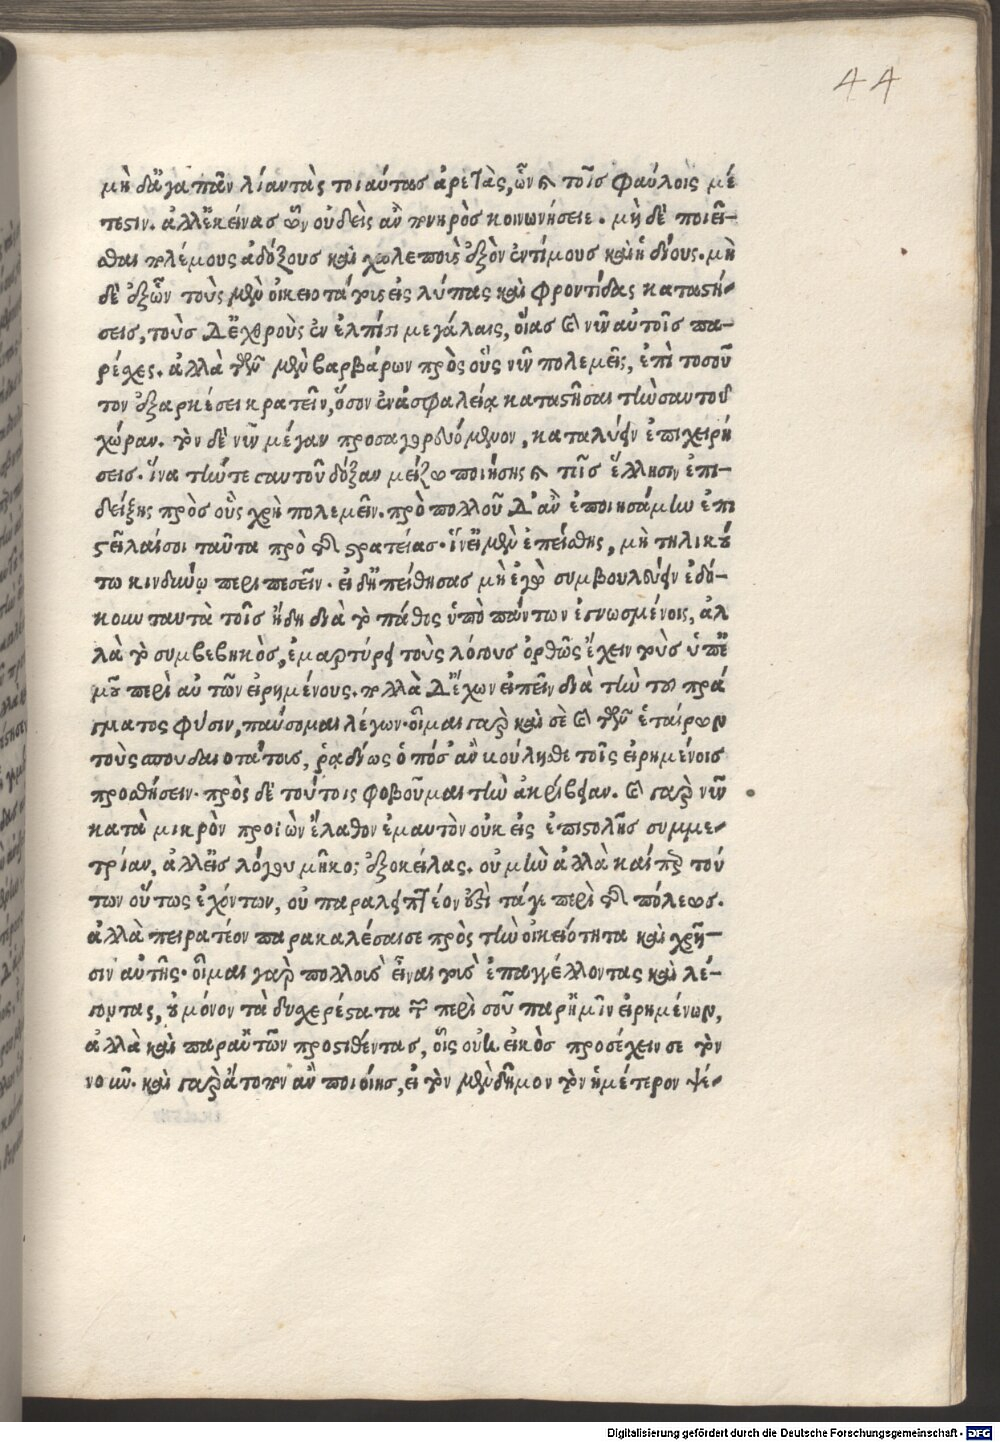 44
μὴ δ᾽ ἀγαπᾶν λίαν τὰς τοιαύτας ἀρετὰς, ὧν καὶ τοῖς φαύλοις μέ
τεστιν. ἀλλ᾽ ἐκείνας ὧν οὐδεὶς ἂν πονηρὸς κοινωνήσειε. μὴ δὲ ποιεῖ-
σθαι πολέμους ἀδόξους καὶ χαλεποὺς ἐξὸν ἐντίμους καὶ ῥᾳδίους. μὴ
δὲ ἐξ ὧν τοὺς μὲν οἰκειοτάτους εἰς λύπας καὶ φροντίδας καταστή-
σεις, τοὺς δ᾽ ἐχθροὺς ἐν ἐλπίσι μεγάλαις, οἵας καὶ νῦν αὐτοῖς πα-
ρέχες. ἀλλὰ τῶν μὲν βαρβάρων πρὸς οὓς νῦν πολεμεῖς, ἐπὶ τοσοῦ
τον ἐξαρκέσει κρατεῖν, ὅσον ἐν ἀσφαλείᾳ καταστῆσαι τὴν σαυτοῦ
χώραν. τὸν δὲ νῦν μέγαν προσαγορευόμενον, καταλύειν ἐπιχειρή
σεις. ἵνα τήν τε σαυτοῦ δόξαν μείζω ποιήσῃς καὶ τοῖς ἕλλησιν ἐπι-
δείξῃς πρὸς οὓς χρὴ πολεμεῖν. πρὸ πολλοῦ δ᾽ ἂν ἐποιησάμην ἐπι
στεῖλαί σοι ταῦτα πρὸ τῆς στρατείας. ἵν᾽ εἰ μὲν ἐπείσθης, μὴ τηλικού
τω κινδύνῳ περιπεσεῖν. εἰ δ᾽ ἠπείθησας μὴ ἐγὼ συμβουλεύειν ἐδό-
κουν ταυτὰ τοῖς ἤδη διὰ τὸ πάθος ὑπὸ πάντων ἐγνωσμένοις, ἀλ
λὰ τὸ συμβεβηκὸς, ἐμαρτύρει τοὺς λόγους ὀρθῶς ἔχειν τοὺς ὑπ᾽ ἐ
μοῦ περὶ αὐτῶν εἰρημένους. πολλὰ δ᾽ ἔχων εἰπεῖν διὰ τὴν τοῦ πρά
γματος φύσιν, παύσομαι λέγων. οἶμαι γὰρ καὶ σὲ καὶ τῶν ἑταίρων
τοὺς σπουδαιοτάτους, ῥᾳδίως ὁπόσ᾽ ἂν βούλησθε τοῖς εἰρημένοις
προσθήσειν. πρὸς δὲ τούτοις φοβοῦμαι τὴν ἀκρίβειαν. καὶ γὰρ νῦν
κατὰ μικρὸν προϊὼν ἔλαθον ἐμαυτὸν οὐκ εἰς ἐπιστολῆς συμμε-
τρίαν, ἀλλ᾽ εἰς λόγου μῆκος ἐξοκείλας. οὐ μὴν ἀλλὰ καίπερ τού
των οὕτως ἐχόντων, οὐ παραλειπτέον ἐστὶ τά γε περὶ τῆς πόλεως.
ἀλλὰ πειρατέον παρακαλέσαι σε πρὸς τὴν οἰκειότητα καὶ χρῆ-
σιν αὐτῆς. οἶμαι γὰρ πολλοὺς εἶναι τοὺς ἐπαγγέλλοντας καὶ λέ-
γοντας, οὐ μόνον τὰ δυσχερέστατα τῶν περὶ σοῦ παρ᾽ ἡμῖν εἰρημένων,
ἀλλὰ καὶ παρ᾽ αὑτῶν προστιθέντας, οἷς οὐκ εἰκὸς προσέχειν σε τὸν
νοῦν. καὶ γὰρ ἄτοπον ἂν ποιοίης, εἰ τὸν μὲν δῆμον τὸν ἡμέτερον ψέ-
Digitalisierung gefördert durch die Deutsche Forschungsgemeinschaft - DFG